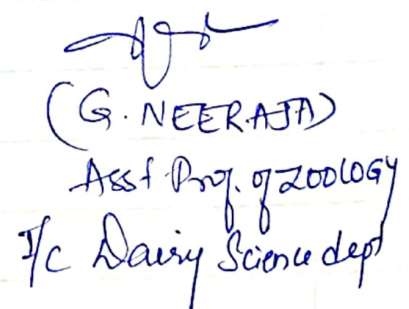 (G. NEERAJA)
Asst Prof. of ZOOLOGY
I/c Dairy Science dept